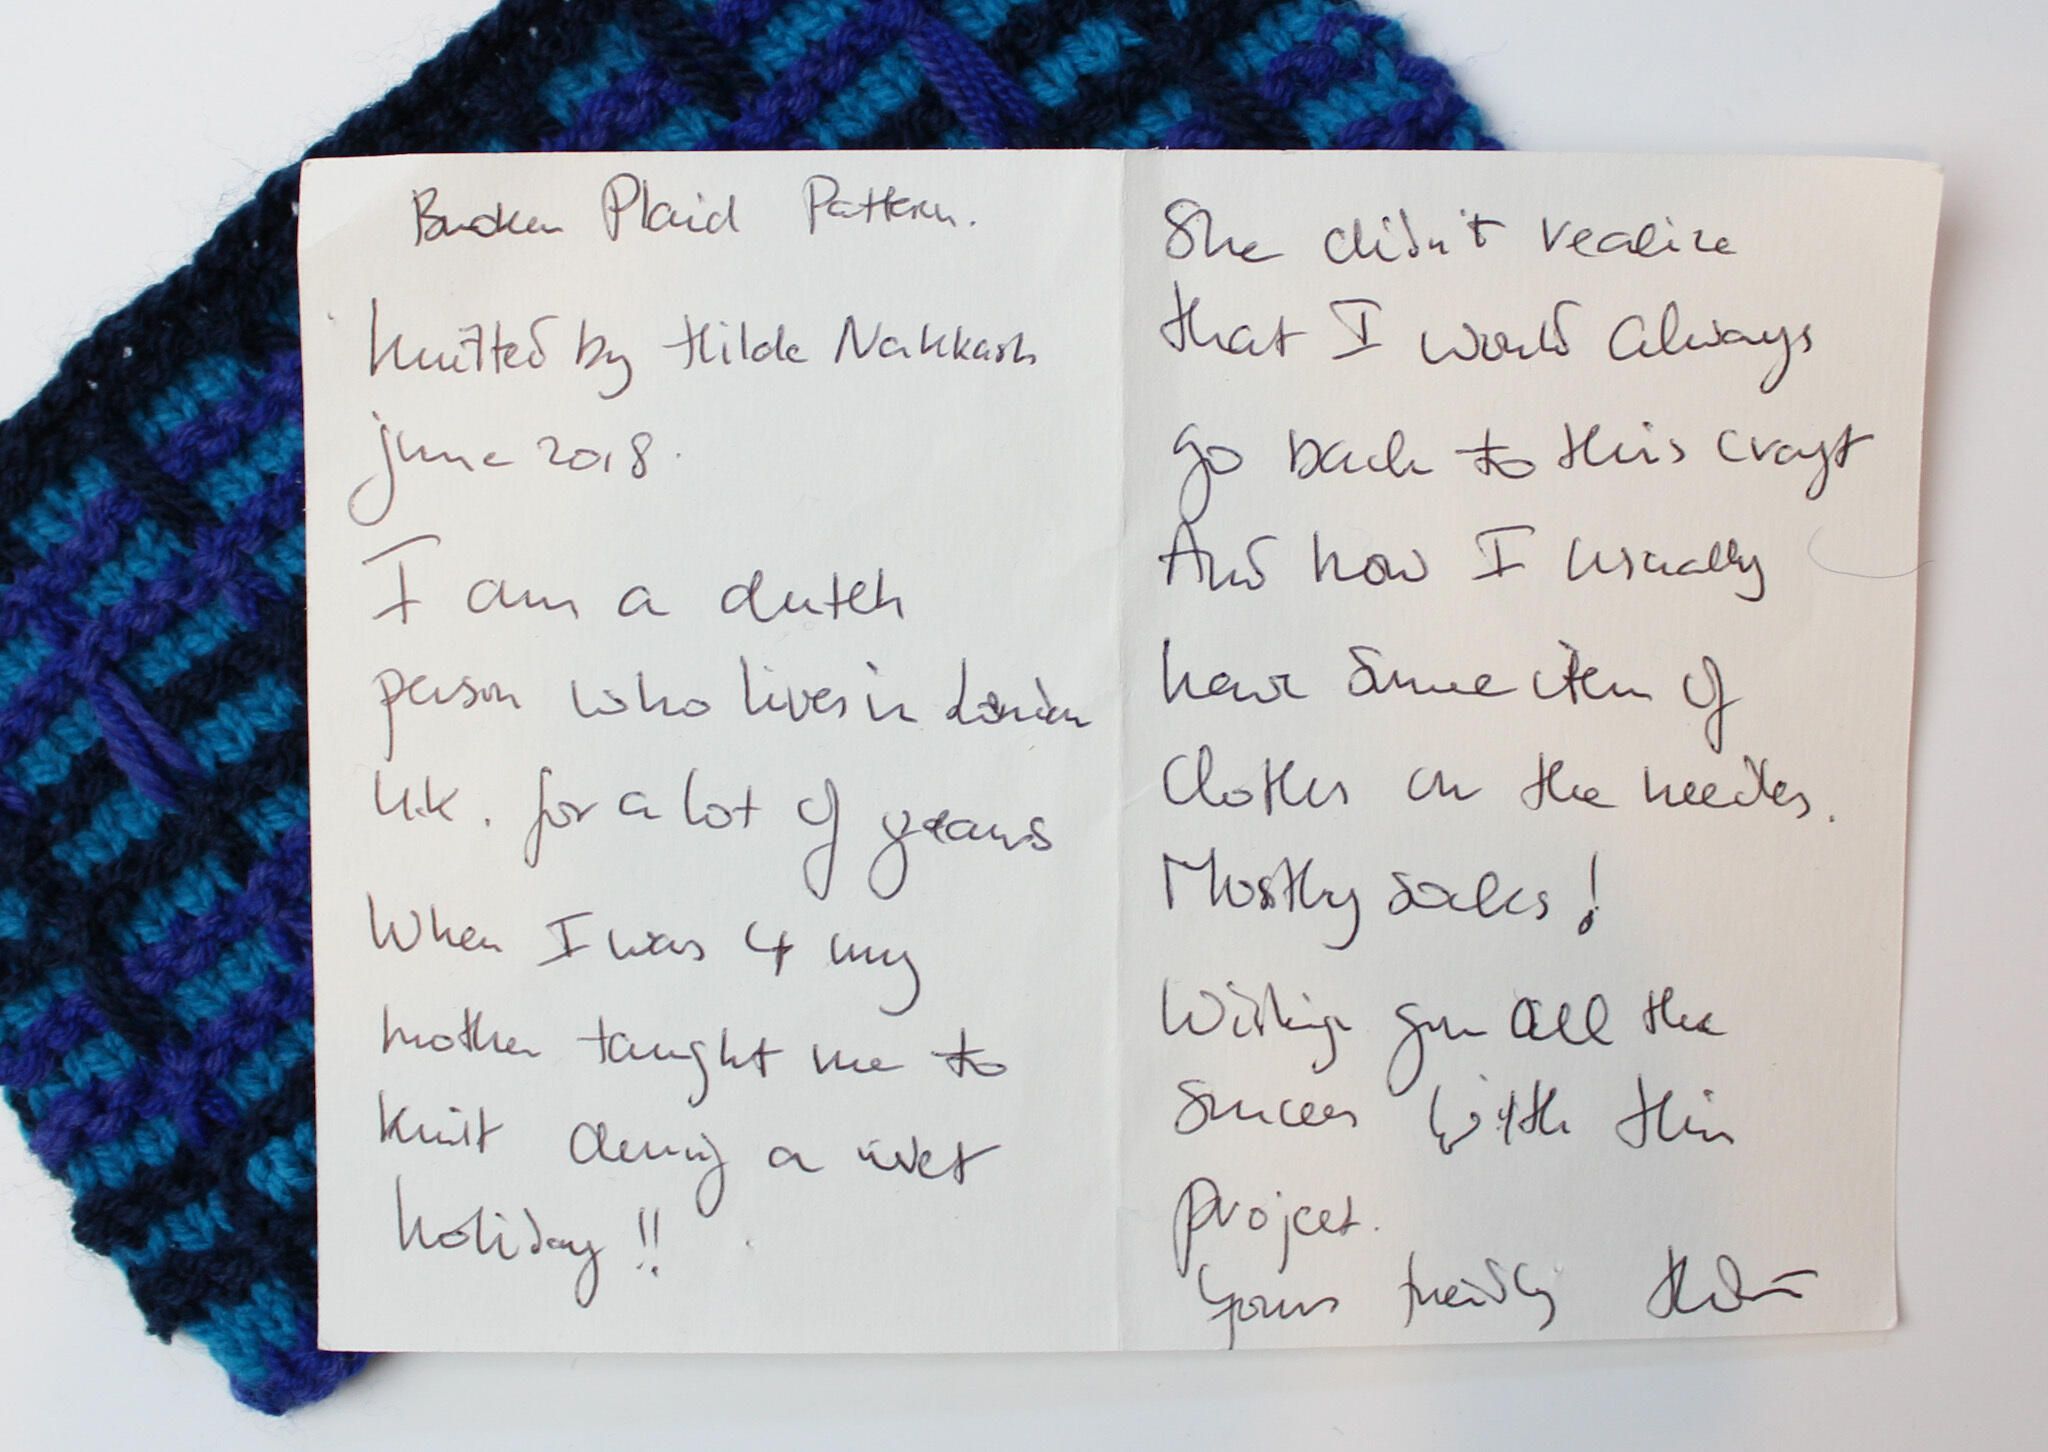 Broken Plaid Pattern.
knitted by Hilde Nakkash
june 2018.
I am a dutch
person who lives in London
u.k. for a lot of years
When I was 4 my
mother taught me to
knit during a wet
holiday !!
She didn't realize
that I would always
go back to this craft
And now I usually
have some item of
clothes on the needles.
Mostly socks!
Wishing you all the
succes with this
project.
Yours friendly Hilde